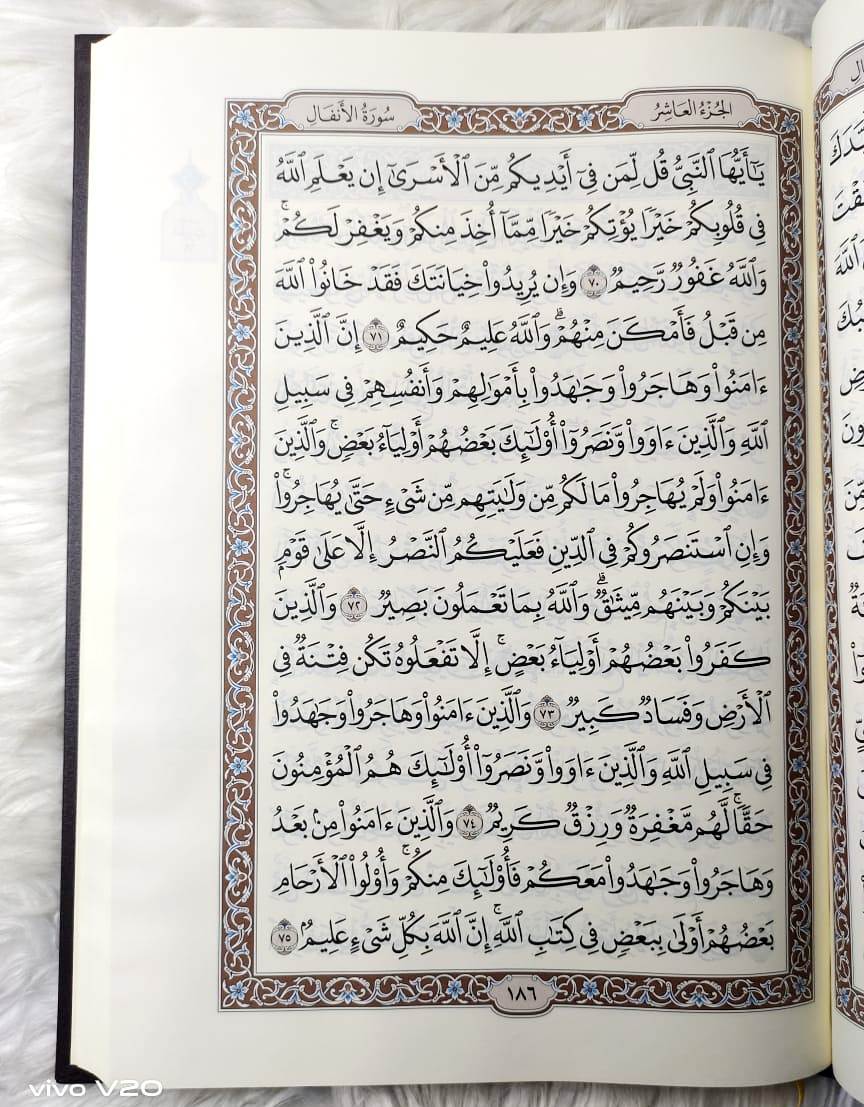 الجُزْءُ العَاشِرُ
سُورَةُ الأَنفَالِ
يَـٰٓأَيُّهَا ٱلنَّبِىُّ قُل لِّمَن فِىٓ أَيْدِيكُم مِّنَ ٱلْأَسْرَىٰٓ إِن يَعْلَمِ ٱللَّهُ
فِى قُلُوبِكُمْ خَيْرًا يُؤْتِكُمْ خَيْرًا مِّمَّآ أُخِذَ مِنكُمْ وَيَغْفِرْ لَكُمْ ۗ
وَٱللَّهُ غَفُورٌ رَّحِيمٌ ٧٠ وَإِن يُرِيدُوا۟ خِيَانَتَكَ فَقَدْ خَانُوا۟ ٱللَّهَ
مِن قَبْلُ فَأَمْكَنَ مِنْهُمْ ۗ وَٱللَّهُ عَلِيمٌ حَكِيمٌ ٧١ إِنَّ ٱلَّذِينَ
ءَامَنُوا۟ وَهَاجَرُوا۟ وَجَـٰهَدُوا۟ بِأَمْوَٰلِهِمْ وَأَنفُسِهِمْ فِى سَبِيلِ
ٱللَّهِ وَٱلَّذِينَ ءَاوَوا۟ وَّنَصَرُوٓا۟ أُو۟لَـٰٓئِكَ بَعْضُهُمْ أَوْلِيَآءُ بَعْضٍ ۚ وَٱلَّذِينَ
ءَامَنُوا۟ وَلَمْ يُهَاجِرُوا۟ مَا لَكُم مِّن وَلَـٰيَتِهِم مِّن شَىْءٍ حَتَّىٰ يُهَاجِرُوا۟ ۚ
وَإِنِ ٱسْتَنصَرُوكُمْ فِى ٱلدِّينِ فَعَلَيْكُمُ ٱلنَّصْرُ إِلَّا عَلَىٰ قَوْمٍۭ
بَيْنَكُمْ وَبَيْنَهُم مِّيثَـٰقٌ ۗ وَٱللَّهُ بِمَا تَعْمَلُونَ بَصِيرٌ ٧٢ وَٱلَّذِينَ
كَفَرُوا۟ بَعْضُهُمْ أَوْلِيَآءُ بَعْضٍ ۚ إِلَّا تَفْعَلُوهُ تَكُن فِتْنَةٌ فِى
ٱلْأَرْضِ وَفَسَادٌ كَبِيرٌ ٧٣ وَٱلَّذِينَ ءَامَنُوا۟ وَهَاجَرُوا۟ وَجَـٰهَدُوا۟
فِى سَبِيلِ ٱللَّهِ وَٱلَّذِينَ ءَاوَوا۟ وَّنَصَرُوٓا۟ أُو۟لَـٰٓئِكَ هُمُ ٱلْمُؤْمِنُونَ
حَقًّا ۚ لَّهُم مَّغْفِرَةٌ وَرِزْقٌ كَرِيمٌ ٧٤ وَٱلَّذِينَ ءَامَنُوا۟ مِنۢ بَعْدُ
وَهَاجَرُوا۟ وَجَـٰهَدُوا۟ مَعَكُمْ فَأُو۟لَـٰٓئِكَ مِنكُمْ ۚ وَأُو۟لُوا۟ ٱلْأَرْحَامِ
بَعْضُهُمْ أَوْلَىٰ بِبَعْضٍ فِى كِتَـٰبِ ٱللَّهِ ۗ إِنَّ ٱللَّهَ بِكُلِّ شَىْءٍ عَلِيمٌۢ ٧٥
١٨٦
vivo V20